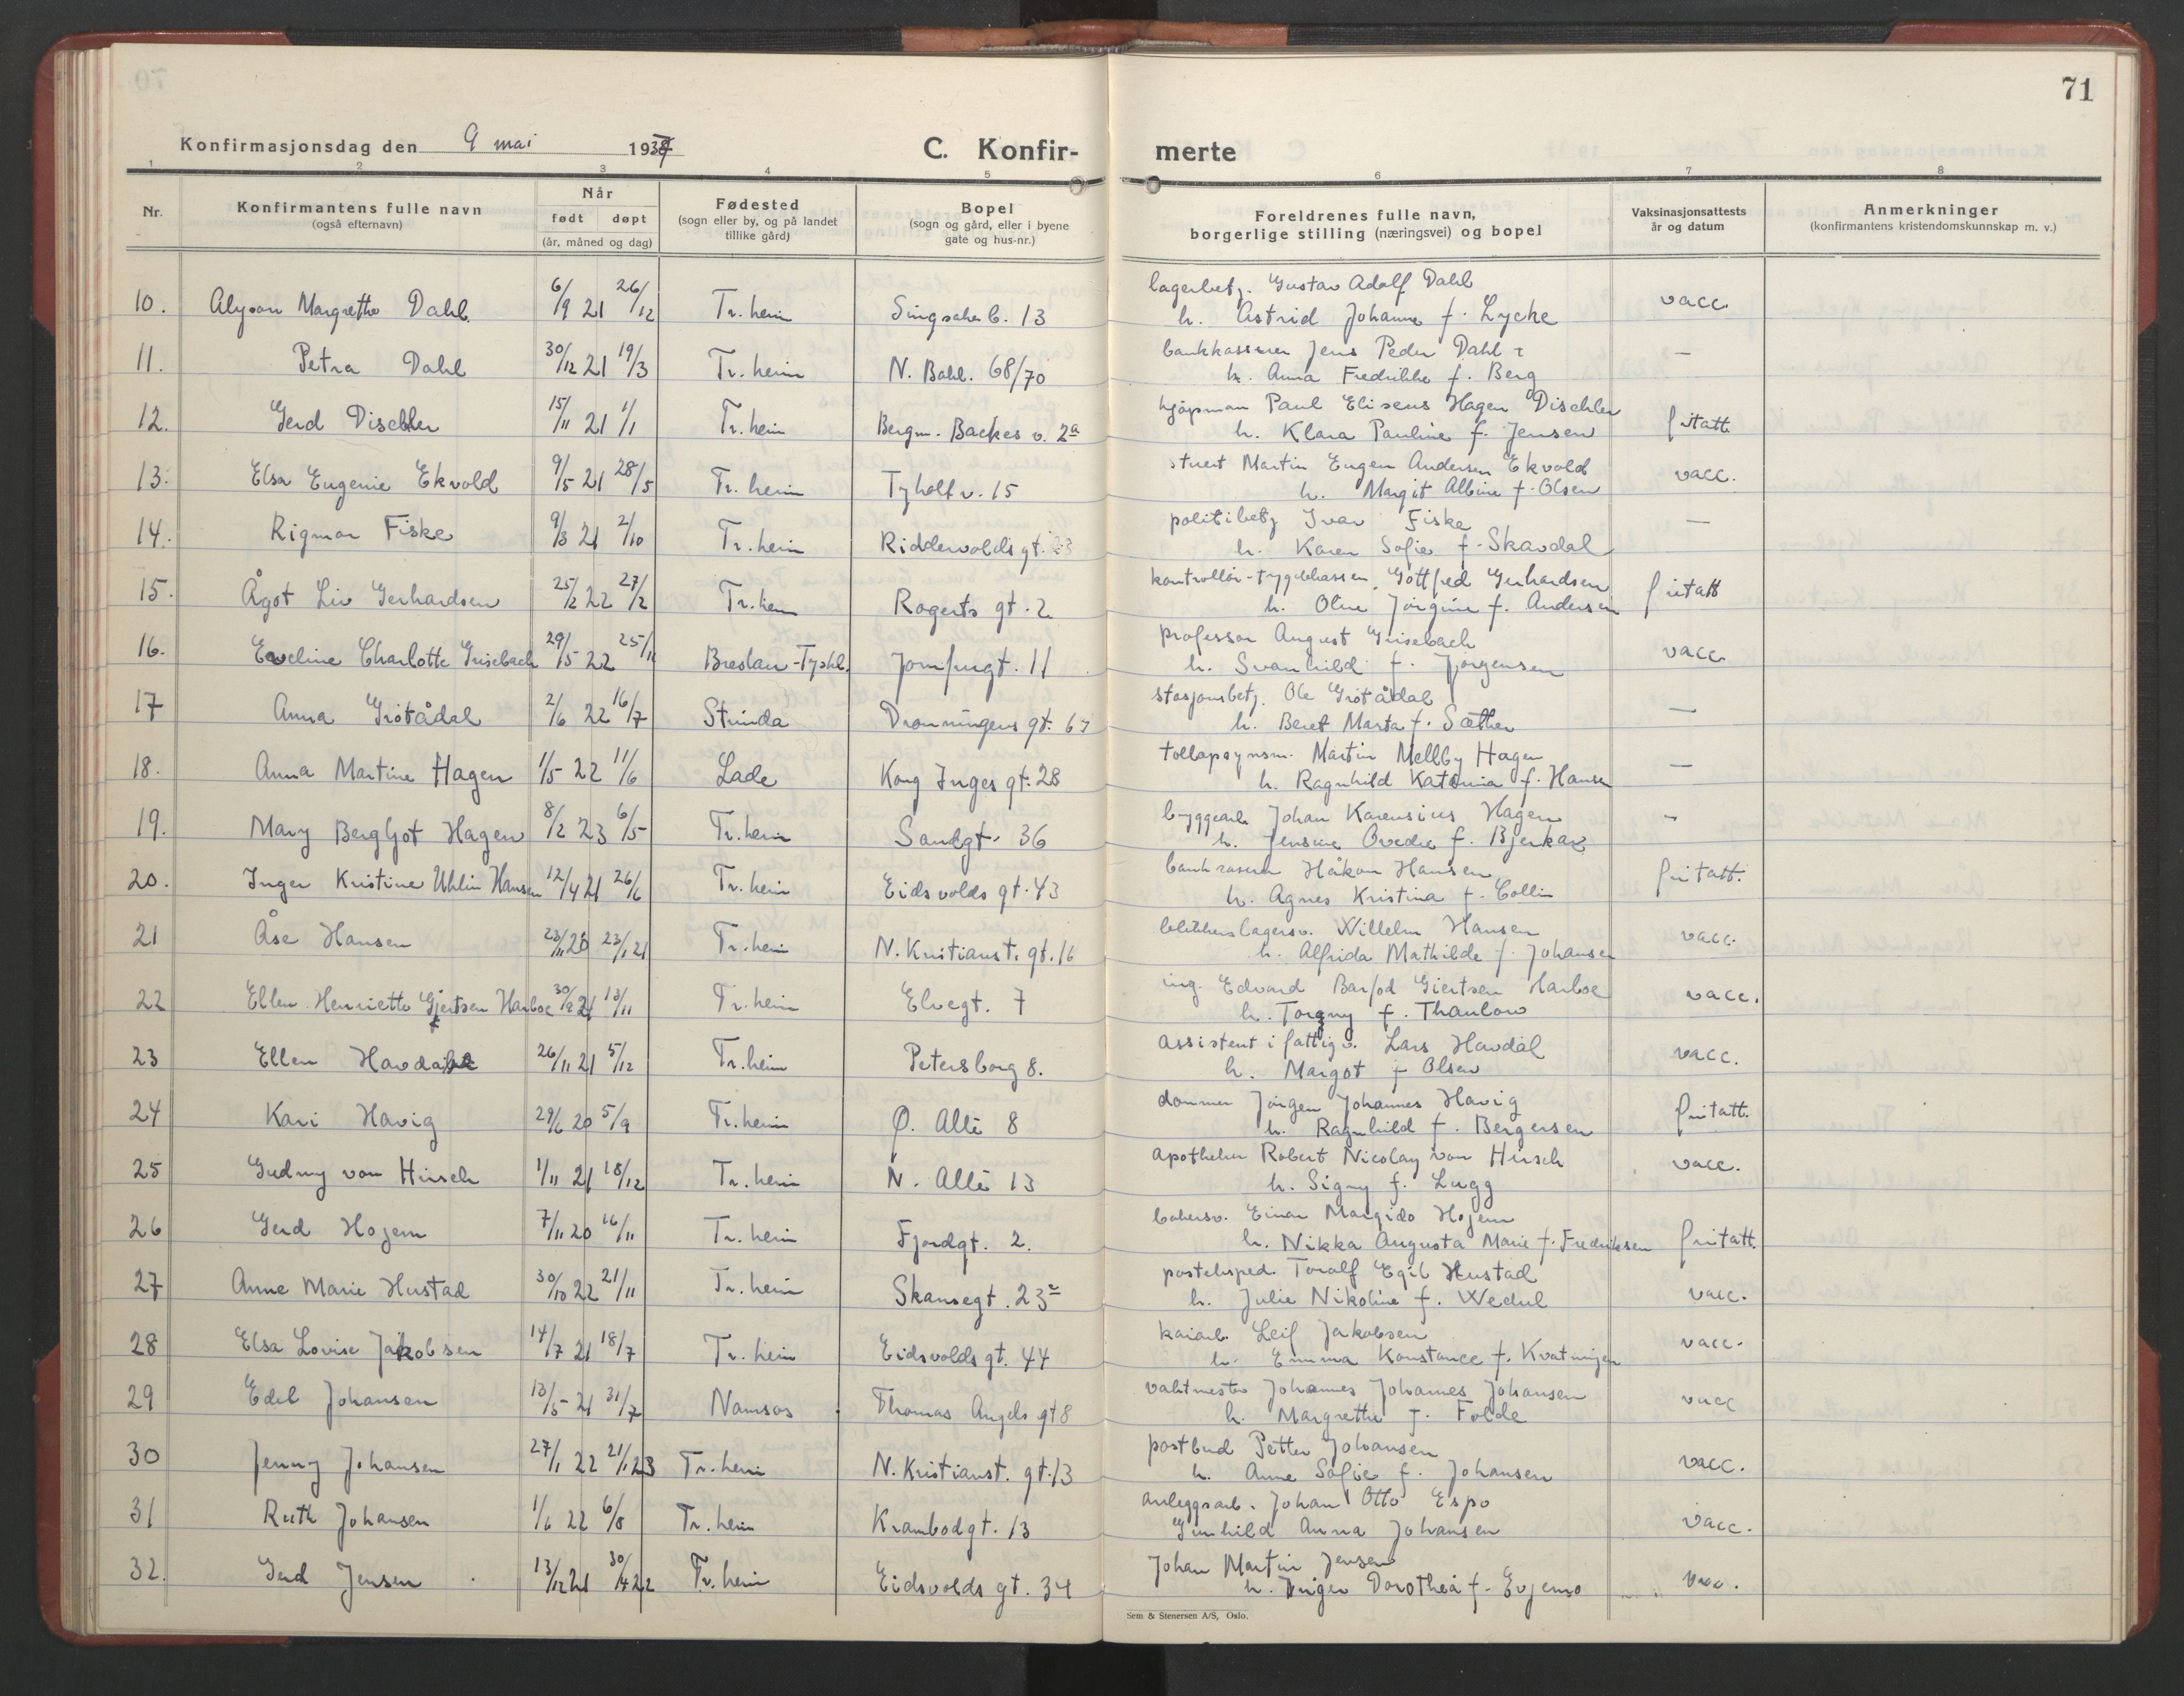 71
Konfirmasjonsdag den 9 mai 1937
C. Konfir-
merte
1 2 3 4 5 6 7 8
Nr.
Konfirmantens fulle navn
(også efternavn)
Når
født døpt
(år, måned og dag)
Fødested
(sogn eller by, og på landet
tillike gård)
Bopel
(sogn og gård, eller i byene
gate og hus-nr.)
Foreldrenes fulle navn,
borgerlige stilling (næringsvei) og bopel
Vaksinasjonsattests
år og datum
Anmerkninger
(konfirmantens kristendomskunnskap m. v.)
10. Margrethe Dahl 6/9 21 26/12 Tr.heim Singsakerb. 13 lagerbetj. Gustav Adolf Dahl vacc.
h. Astrid Johanne f. Lycke
11. Petra Dahl 30/12 21 19/3 Tr.heim N. Bakl. 68/70 bankkasserer Jens Peder Dahl –
h. Anna Fredrikke f. Berg
12. Gerd Dischler 15/11 21 1/1 Tr.heim Bergm. Backes v. 2a kjøpman Paul Eliseus Hagen Dischler fritatt
h. Klara Pauline f. Jensen
13. Elsa Eugenie Ekvold 9/5 21 28/5 Tr.heim Tyholtv. 15 stuert Martin Eugen Andersen Ekvold vacc.
h. Margit Albine f. Olsen
14. Rigmor Fiske 9/3 21 2/10 Tr.heim Riddervolds gt. 23 politibetj Ivar Fiske –
h. Karen Sofie f. Skavdal
15. Ågot Liv Gerhardsen 25/2 22 27/2 Tr.heim Rogerts gt. 2 kontrollør-trygdekassen Gottfred Gerhardsen fritatt
h. Oline Jørgine f. Andersen
16. Eveline Charlotte Grisebach 29/5 22 25/11 Breslau-Tyskl. Jomfrugt. 11 professor August Grisebach vacc.
h. Svanhild f. Jørgensen
17 Anna Grotådal 2/6 22 16/7 Strinda Dronningens gt. 67 stasjonsbetj. Ole Grotådal –
h. Beret Marta f. Sæther
18. Anna Martine Hagen 1/5 22 11/6 Lade Kong Inges gt. 28 tollopsynsm. Martin Mellby Hagen –
h. Ragnhild Katrina f. Hansen
19. Mary Bergljot Hagen 8/2 23 6/5 Tr.heim Sandgt. 36 byggearb Johan Karensius Hagen –
h. Jensine Ovedie f. Bjerkan
20. Inger Kristine Uhlin Hansen 12/4 21 26/6 Tr.heim Eidsvolds gt. 43 Håkon Hansen fritatt.
h. Agnes Kristina f. Collin
21 Åse Hansen 23/11 20 23/1 21 Tr.heim N. Kristianst. gt. 16 blikkenslagersv. Willelm Hansen vacc.
h. Alfrida Mathilde f. Johansen
22 Ellen Henriette Gjertsen Harboe 30/9 21 13/11 Tr.heim Elvegt. 7 ing. Edvard Barfod Giertsen Harboe vacc.
h. Torgny f. Thaulow
23 Ellen Havdal 26/11 21 5/12 Tr.heim Petersborg 8. assistent i fattigv. Lars Havdal vacc.
h. Margot f Olsen
24 Kari Havig 29/6 20 5/9 Tr.heim Ø. Allé 8 dommer Jørgen Johannes Havig fritatt.
h. Ragnhild f. Bergersen
25 Gudny von Hirsch 1/11 21 18/12 Tr.heim N. Allé 13 apotheker Robert Nicolay von Hirsch vacc.
h. Signy f. Lugg
26 Gerd Hojem 7/11 20 16/11 Tr.heim Fjordgt. 2. bakersv. Einar Margido Hojem fritatt.
h. Nikka Augusta Marie f. Fredriksen
27 Anne Marie Hustad 30/10 22 21/11 Tr.heim Skansegt. 23a postekspd. Toralf Egil Hustad vacc.
h. Julie Nikoline f. Wedul
28 Elsa Lovise Jakobsen 14/7 21 18/7 Tr.heim Eidsvolds gt. 44 kaiarb. Leif Jakobsen vacc.
h. Emma Konstance f. Kvatningen
29 Edel Johansen 13/5 21 31/7 Namsos Thomas Angels gt 8 vaktmester Johannes Johannes Johansen vacc
h. Margrethe f. Folde
30 Jenny Johansen 27/1 22 21/1 23 Tr.heim N. Kristianst. gt. 13 postbud Petter Johansen vacc.
h. Anne Sofie f. Johansen
31 Ruth Johansen 1/6 22 6/8 Tr.heim Krambodgt. 13 anleggsarb. Johan Otto Espo vacc.
Gunhild Anna Johansen
32. Gerd Jensen 13/12 21 30/4 22 Tr.heim Eidsvolds gt. 34 Johan Martin Jensen vacc.
h. Inger Dorothea f. Evjemo
Sem & Stenersen A/S, Oslo.